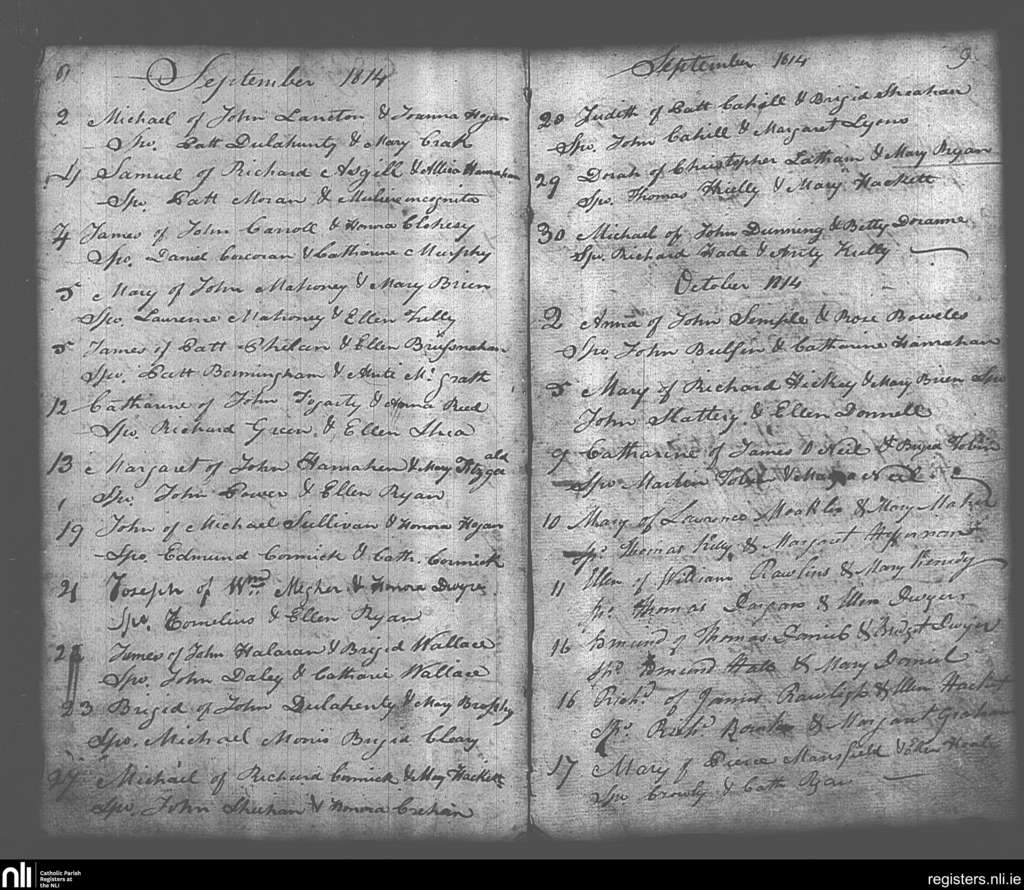 September 1814
2 Michael of John Lanston & Joanna Hogan
Spo. Patt Dulahunty & Mary Crak
4 Samuel of Richard Asgill & Allicia Hanrahan
Spo. Patt Moran & Muliere incognita
4 James of John Carroll & Honra Clohesy
Spo. Daniel Corcoran & Catharine Murphy
5 Mary of John Mahoney & Mary Brien
Spo. Laurence Mahoney & Ellen Tully
5 James of Patt Phelan & Ellen
Spo. Patt Bermingham & McGrath
12 Catharine of John Fogarty & Reed
Spo. Richard Green & Ellen Shea
13 Margaret of John Hanrahen & Mary Fitzgerald
Spo. John Power & Ellen Ryan
19 John of Michael Sullivan & Honora Hogan
Spo. Edmund Cormick & Cath. Cormick
21 Joseph of Wm Megher & Honora Dwyre
Spo. Cornelius & Ellen Ryan
James of John Halaran & Brigid Wallace
Spo. John Daley & Catharie Wallace
23 Brigid of John Dulahenty & May Brophy
Spo. Michael Morris Brigid Cleary
27 Michael of Richard Cormick & May Hackett
Spo. John Shuhan & Honora Crehan
9
September 1814
20 Judith of Patt Cahill & Brigid Sheahan
Spo. John Cahill & Margaret Lyons
29 Dorah of Christopher Latham & Mary Bryan
Spo. Thomas & Mary Hackett
30 Michael of John Dunning & Betty Doranne
Spo. Richard Hade & Kielly
October 1814
2 Anna of John Semple & Rose Bowles
Spo. John Bulfin & Catharine Hanrahan
5 Mary of Richard Hickey & Mary Brien Spo
John Slattery & Ellen Donnell
9 Catharine of James O Neil & Brigid Tobin
Spo. Marten Tobin & Neil
10 Mary of Lawrence & Mary Maher
Sp. Thomas & Margaret Hffernan
11 Ellen of William Rawlins & Mary Kennedy
Sp. Thomas & Ellen Dwyer
16 Edmund of Thomas Daniel & Bridget Dwyer
Sp. Edmund & Mary Daniel
16 Richd. of James Rawleigh & Ellen Hackett
Sp. Richd. & Margaret Graham
17 Mary of Pierce Mansfield & Ellen
Spo Crowly & Cath Ryan
nli Catholic Parish
Registers at
the NLI
registers.nli.ie